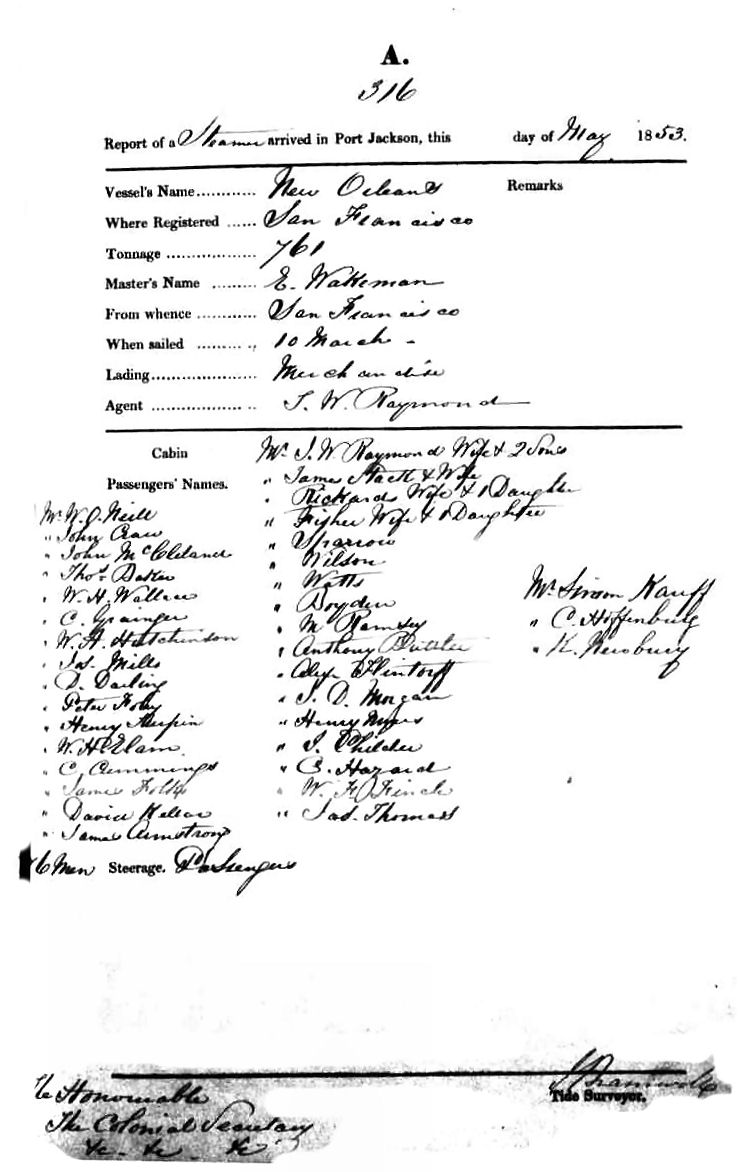 A.
316
Report of a Steamer arrived in Port Jackson, this day of May 1853.
Vessel's Name............ New Orleans
Remarks
Where Registered ...... San Francisco
Tonnage .................. 761
Master's Name ......... E. Wakeman
From whence ............ San Francisco
When sailed ............ 10 March -
Lading..................... Merchandise
Agent ..................... S. W. Raymond
Cabin
Passengers' Names.
Mr W. O. Neill
" John Craw
" John McCleland
" Thos. Baker
" W. H. Wallace
" C. Grainger
" W. A. Hutchinson
" Jas. Mills
" D. Darling
" Peter Foley
" Henry Turpin
" W. H. Elam
" C. Cummings
" James Folds
" David
" James Armstrong
Mr S. W. Raymond Wife & 2 Sons
" James & Wife
" Rickards Wife & 1 Daughter
" Fisher Wife & 1 Daughter
" Sparrow
" Wilson
" Watts
" Boyden
" M Ramsey
" Anthony Buttler
" Alex Flintoff
" S. D. Morgan
" Henry Myers
" J. Childer
" C. Hazard
" W. F. Finch
" Jas. Thomas
Mr Simon Kauff
" C. Hoffenburg
" K. Newburg
76 Men Steerage. Passengers
The Honourable
The Colonial Secretary
&c - &c - &c
Tide Surveyor.